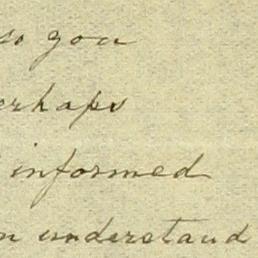 so you
erhaps
informed
n understand